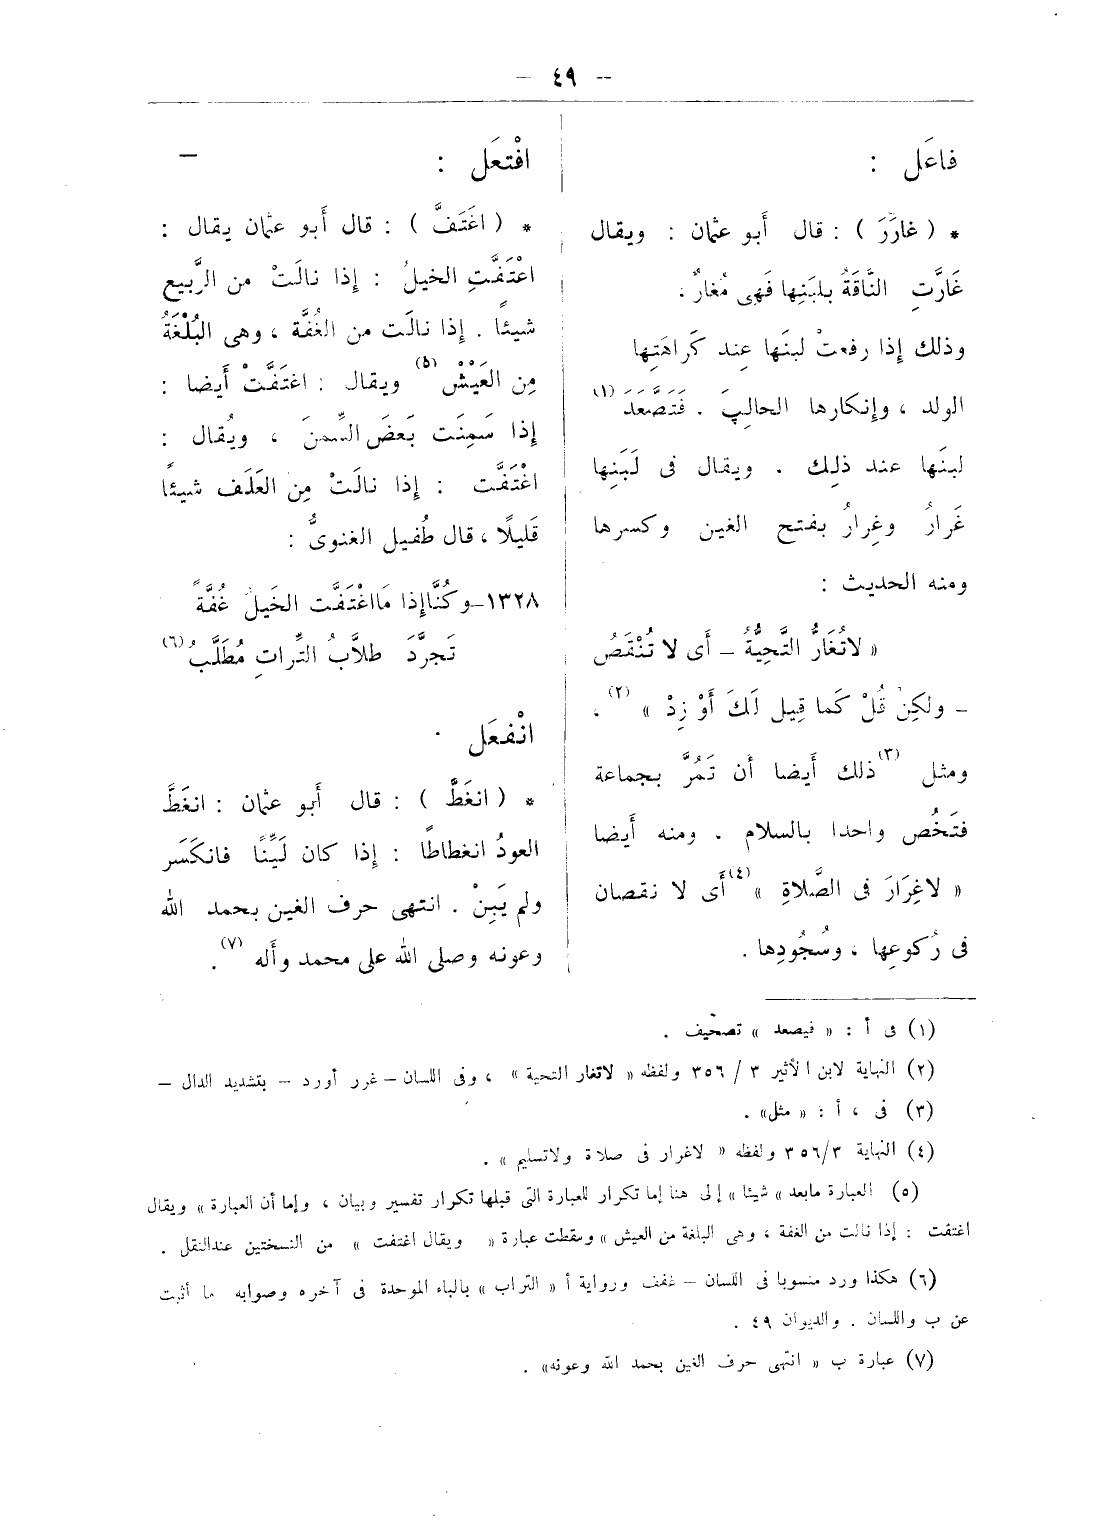 – ٤٩ –
فاعَل :
* ( غارَرَ ) : قال أَبو عثمان : ويقال
غَارَّتِ النَّاقَةُ بلبَنِها فَهى مُغارٌ .
وذلك إذا رفعتْ لبنَها عِند كَراهَتِها
الولد ، وإنكارها الحالِبَ . فَتَصَّعَدَ (١)
لبنَها عند ذلِك . ويقال فى لَبَنِها
غَرارٌ وغِرارٌ بفتح الغين وكسرها
ومنه الحديث :
« لاتُغَارُّ التَّحِيَّةُ – أَى لا تُنْقَصُ
– ولكِنْ قُلْ كَما قِيل لَكَ أَوْ زِدْ » (٢) .
ومثل (٣) ذلك أَيضا أن تَمُرَّ بجماعة
فتَخُص واحدا بالسلام . ومنه أَيضا
« لاغِرَارَ فى الصَّلاةِ » (٤) أَى لا نقصان
فى رُكوعِها ، وسُجُودِها .
افْتعَل :
–
* ( اغَتَفَّ ) : قال أَبو عثمان يقال :
اغْتَفَّتِ الخيلُ : إذا نالَتْ من الرَّبيع
شيئًا . إذا نالَت من الغُفَّة ، وهى البُلْغَةُ
مِن العَيْشْ (٥) ويقال : اغتَفَّتْ أَيضا :
إذا سَمِنَت بَعَضَ السِّمنَ ، ويُقال :
اغْتَفَّت : إذا نالَتْ مِن العَلَف شيئًا
قَليلًا ، قال طُفيل الغنوىُّ :
١٣٢٨–وكُنَّاإذا مَااغْتَفَّت الخَيلُ غُفَّةً
تَجرَّدَ طلاَّبُ التِّراتِ مُطَلَّبُ (٦)
انْفعَل .
* ( انغَطَّ ) : قال أَبو عثمان : انغَطَّ
العودُ انغطاطًا : إذا كان لَيِّنًا فانكَسَر
ولم يَبِنْ . انتهى حرف الغين بحمد الله
وعونه وصلى الله على محمد وأَله (٧) .
(١) فى أ : « فيصعد » تصحيف .
(٢) النهاية لابن الأثير ٣ / ٣٥٦ ولفظه « لاتغار التحية » ، وفى اللسان – غرر أورد – بتشديد الدال –
(٣) فى ، أ : « مثل» .
(٤) النهاية ٣٥٦/٣ ولفظه « لاغرار فى صلاة ولاتسليم » .
(٥) العبارة مابعد « شيئا » إلى هنا إما تكرار للعبارة التى قبلها تكرار تفسير وبيان ، وإما أن العبارة » ويقال
اغتفت : إذا نالت من الغفة ، وهى البلغة من العيش » وسقطت عبارة « ويقال اغتفت » من النسختين عندالنقل .
(٦) هكذا ورد منسوبا فى اللسان – غفف ورواية أ « التراب » بالباء الموحدة فى آخره وصوابه ما أثبت
عن ب واللسان . والديوان ٤٩ .
(٧) عبارة ب « انتهى حرف الغين بحمد الله وعونه» .